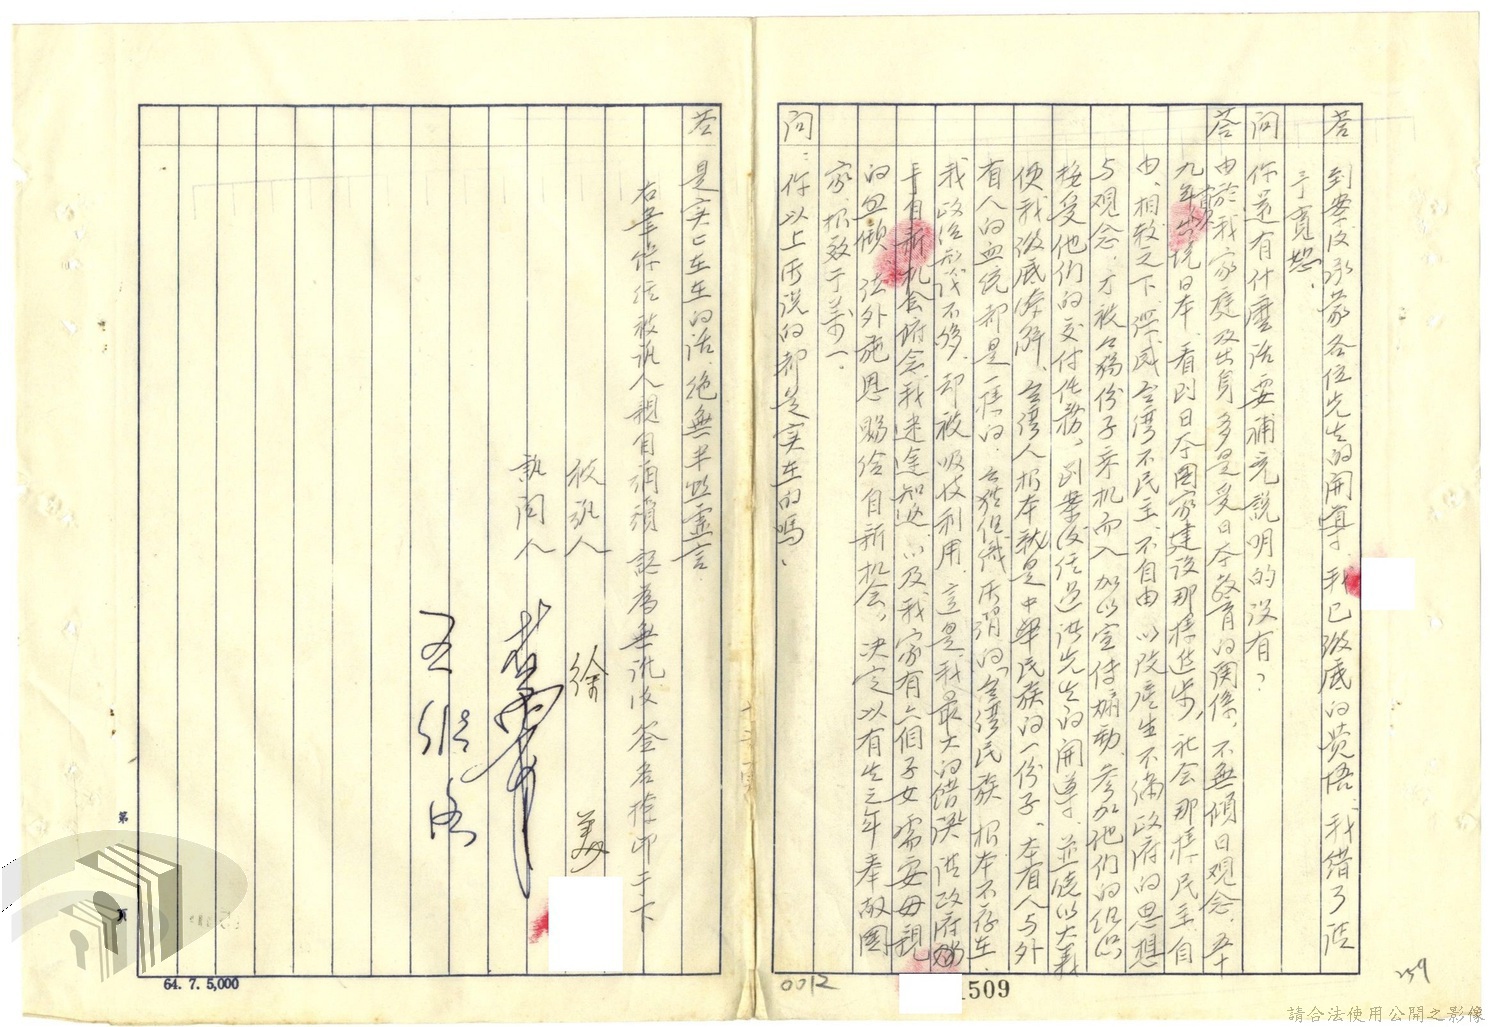 答 到案後承蒙各位先生的開導、我已澈底的覺悟、我錯了請
予寬恕、
問 你還有什麼話要補充說明的沒有？
答 由於我家庭及出身多是受日本教育的關係、不無傾日觀念、五十
九年出境日本、看到日本國家建設那樣進步、社会那樣民主、自
由、相較之下、深感台湾不民主、不自由、以致產生不滿政府的思想
与观念、才被台獨份子乘机而入、加以宣传煽動、參加他們的组织
接受他們的交付任務。到案後经过諸先生的開導、並曉以大義
使我澈底瞭解、台湾人根本就是中華民族的一份子、本省人与外
省人的血统都是一样的、台獨组織所谓的「台湾民族」根本不存在、
我政治認识不够、却被吸收利用、這是我最大的錯誤、請政府賜
予自新机会、俯念我迷途知返、以及我家有六個子女需要母親
的照顧、法外施恩、賜给自新机会。决定以有生之年奉献國
家、报效于萬一。
問：你以上所說的都是实在的嗎、
答 是实实在在的话、絕無半點虛言、
右筆錄经被訊人親自閱讀認為無訛後签名捺印于下
被訊人 徐 美
訊問人
王
第 頁
64. 7. 5,000
0012
1509
259
請合法使用公開之影像